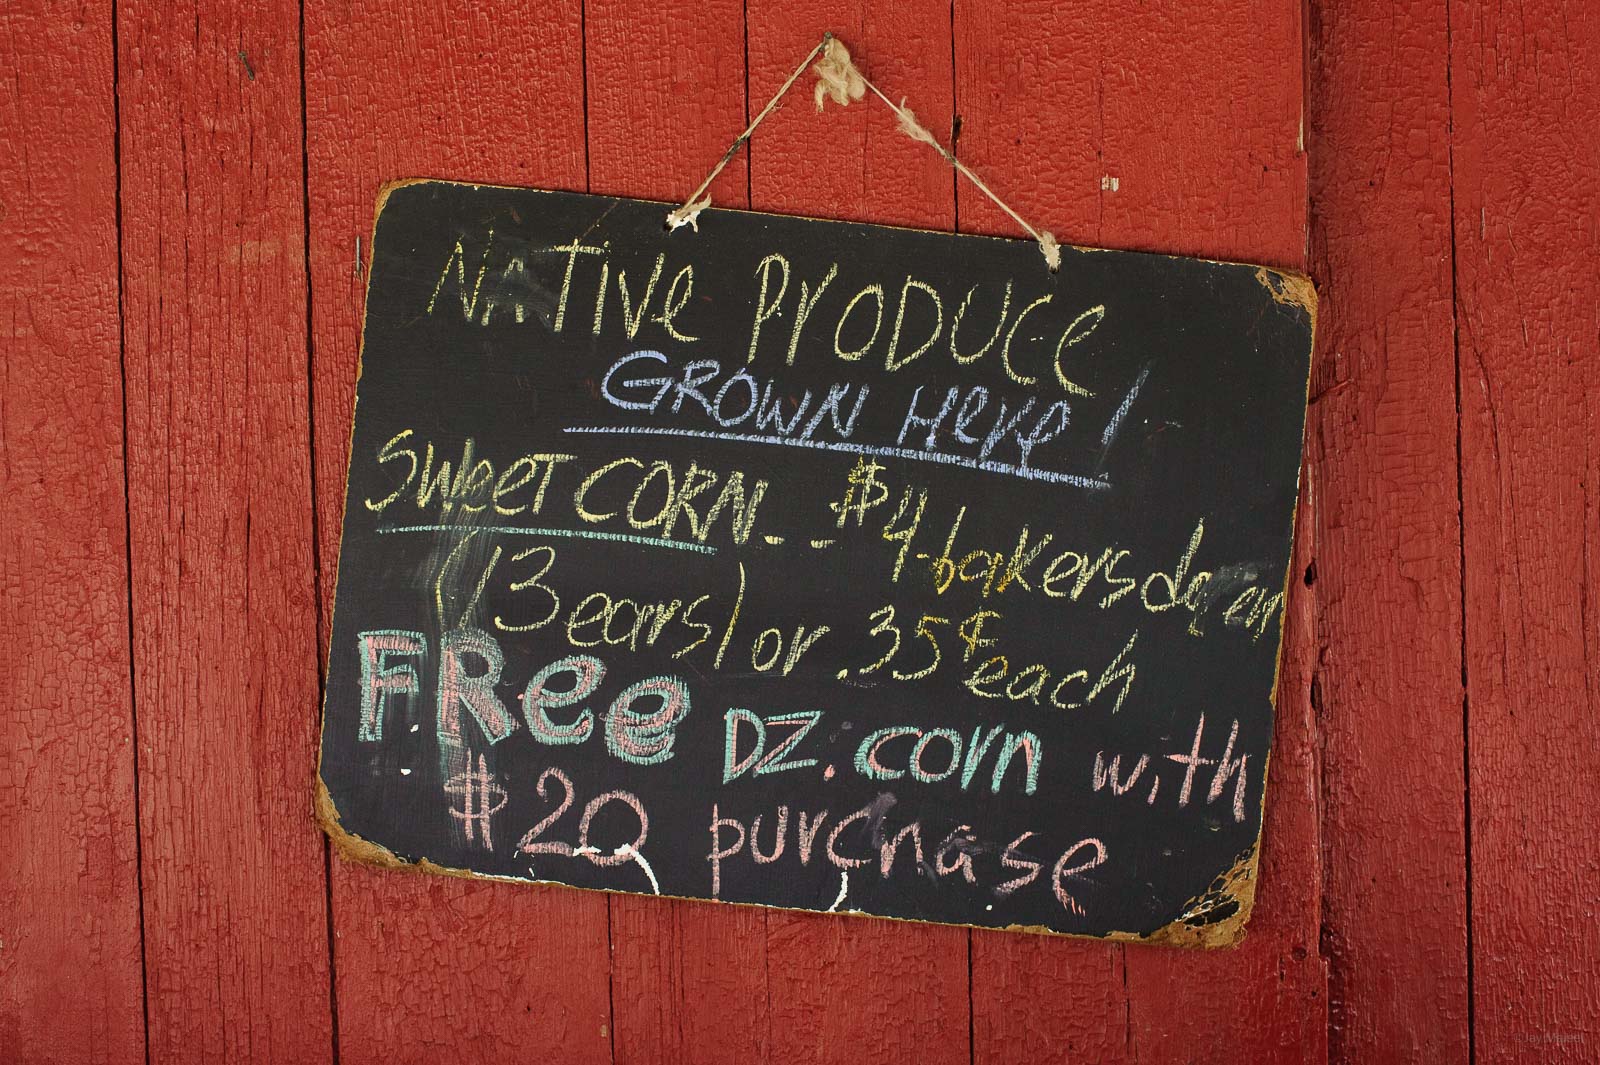 NATIVe PrODUCe
GROWN HeRe!
SWeeT CORN -- $4 bakers dozen
(13 ears) or .35¢ each
FRee DZ. corn with
$20 purchase